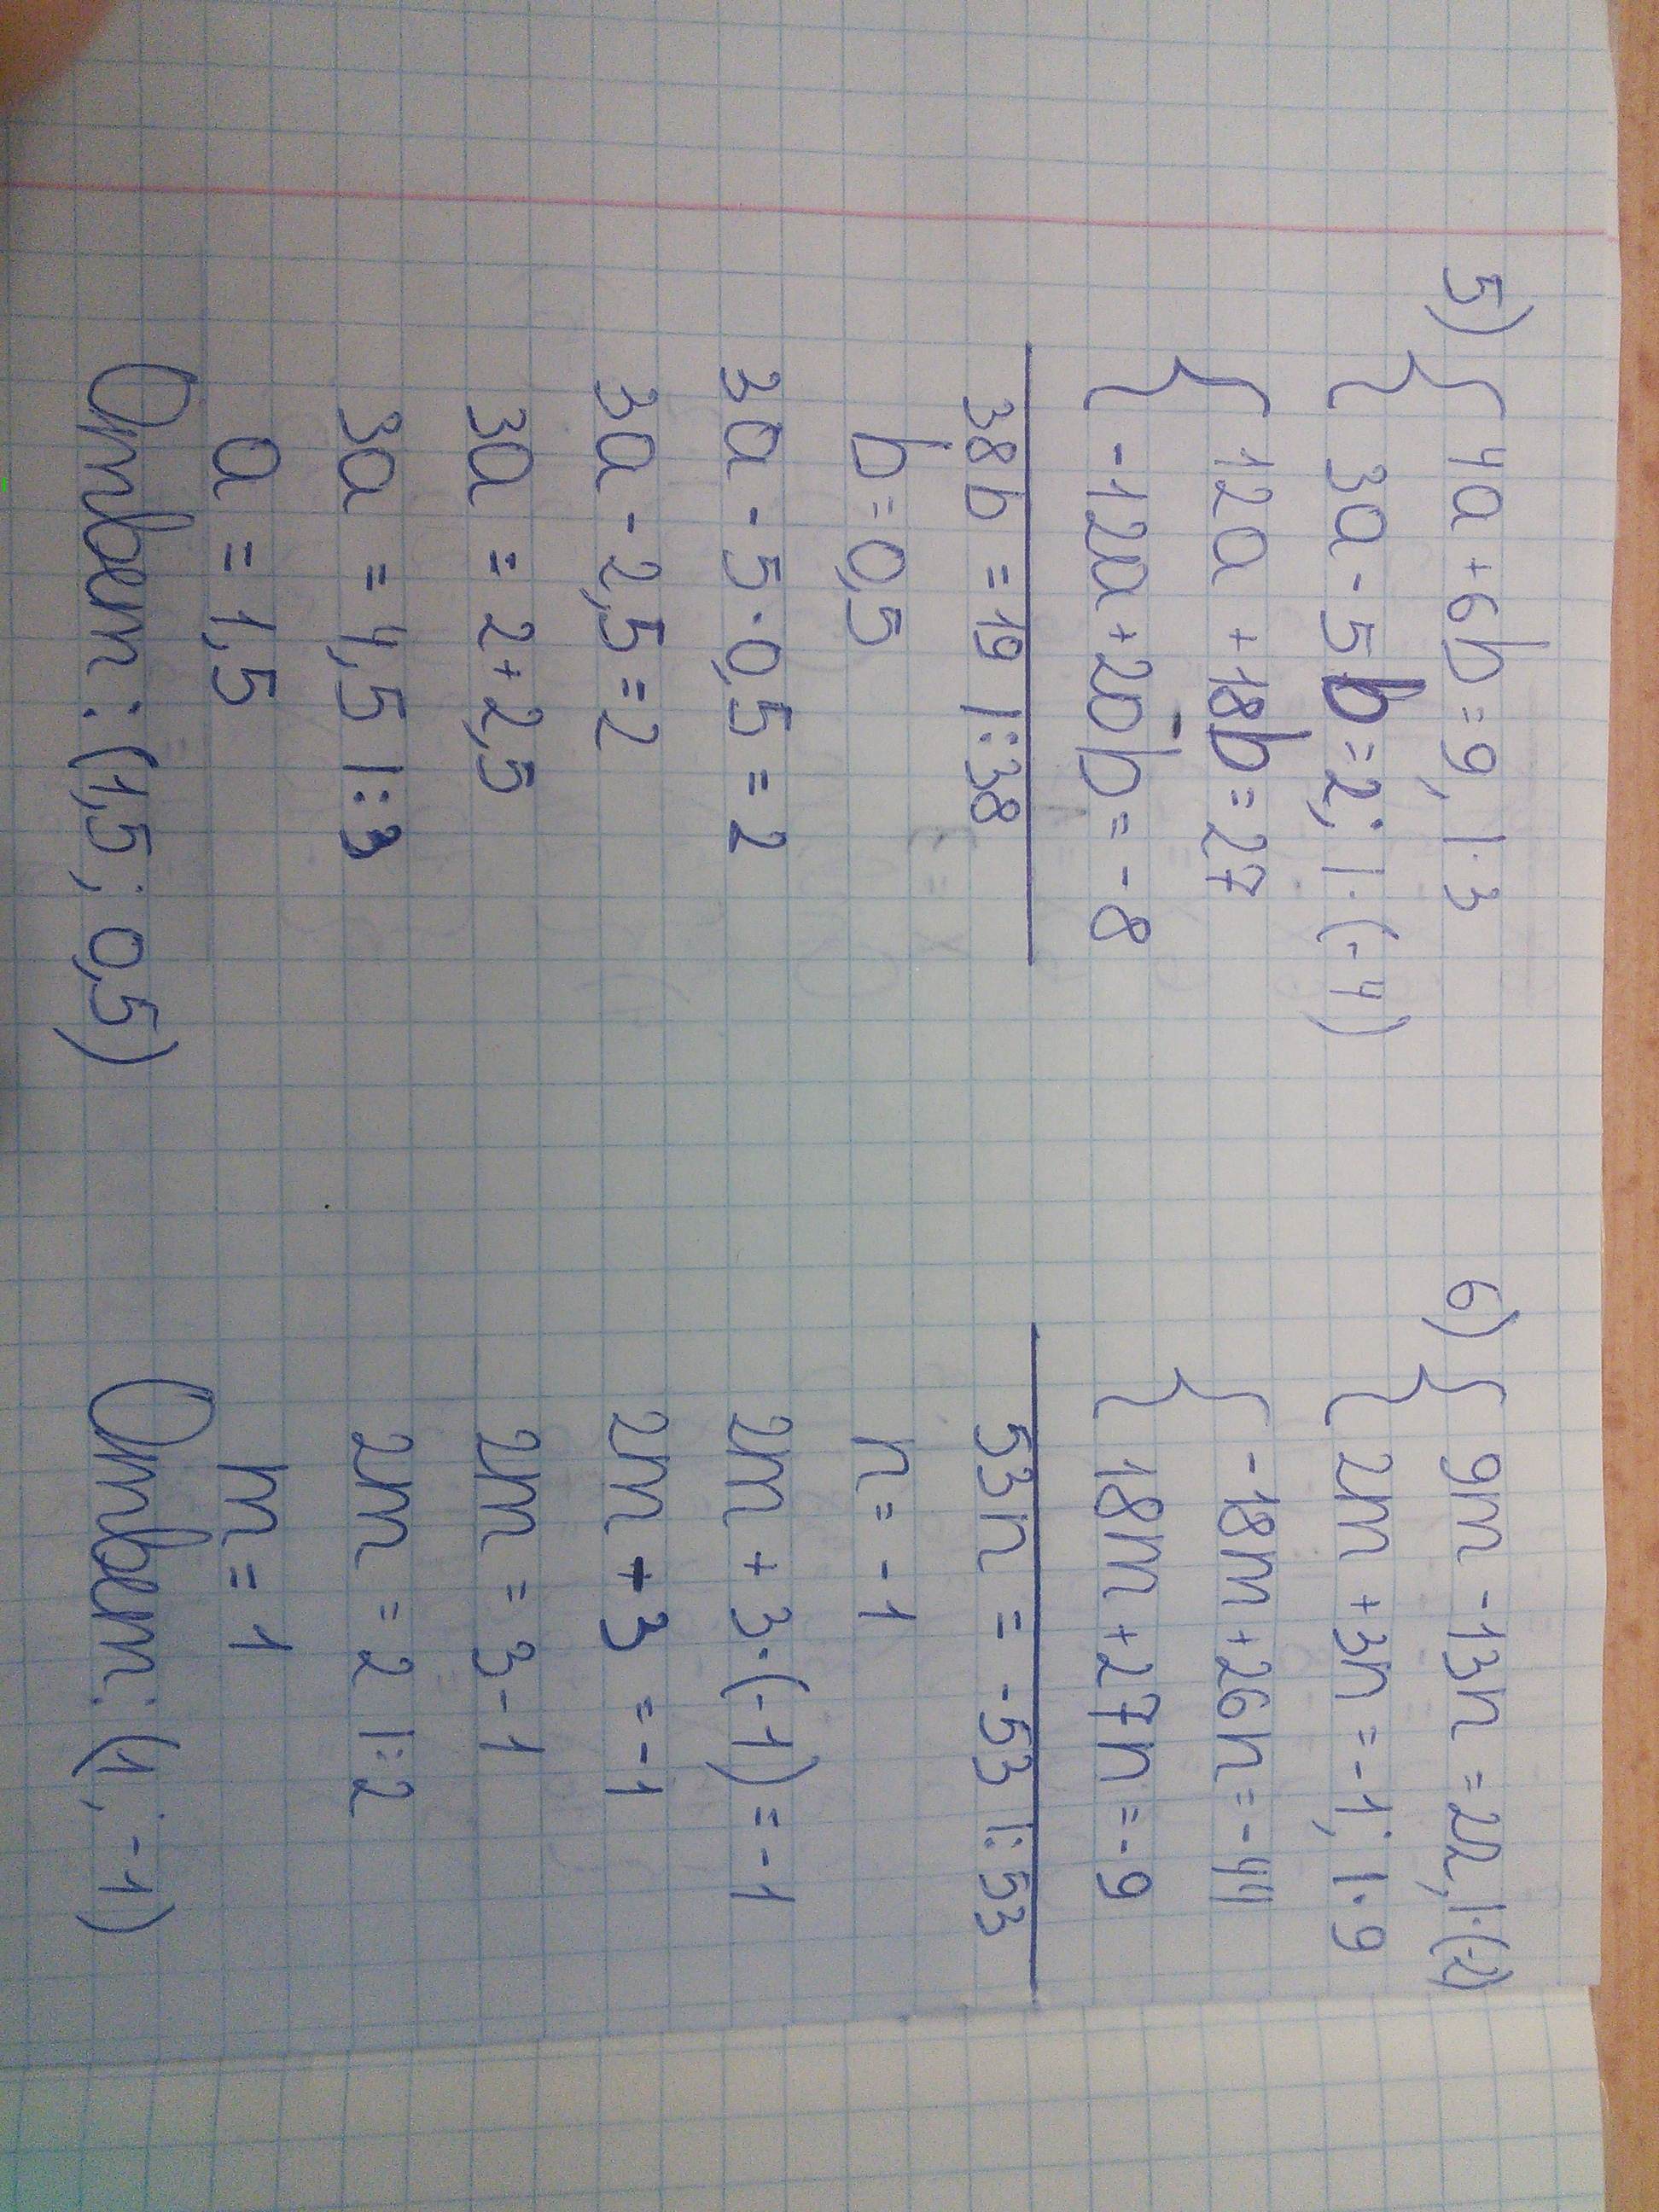 5) { 4a + 6b = 9, | · 3
3a - 5b = 2; | · (-4)
{ 12a + 18b = 27
-12a + 20b = -8
38b = 19 | : 38
b = 0,5
3a - 5 · 0,5 = 2
3a - 2,5 = 2
3a = 2 + 2,5
3a = 4,5 | : 3
a = 1,5
Ответ: (1,5 ; 0,5)
6) { 9m - 13n = 22, | · (-2)
2m + 3n = -1; | · 9
{ -18m + 26n = -44
18m + 27n = -9
53n = -53 | : 53
n = -1
2m + 3 · (-1) = -1
2m + 3 = -1
2m = 3 - 1
2m = 2 | : 2
m = 1
Ответ: (1; -1)